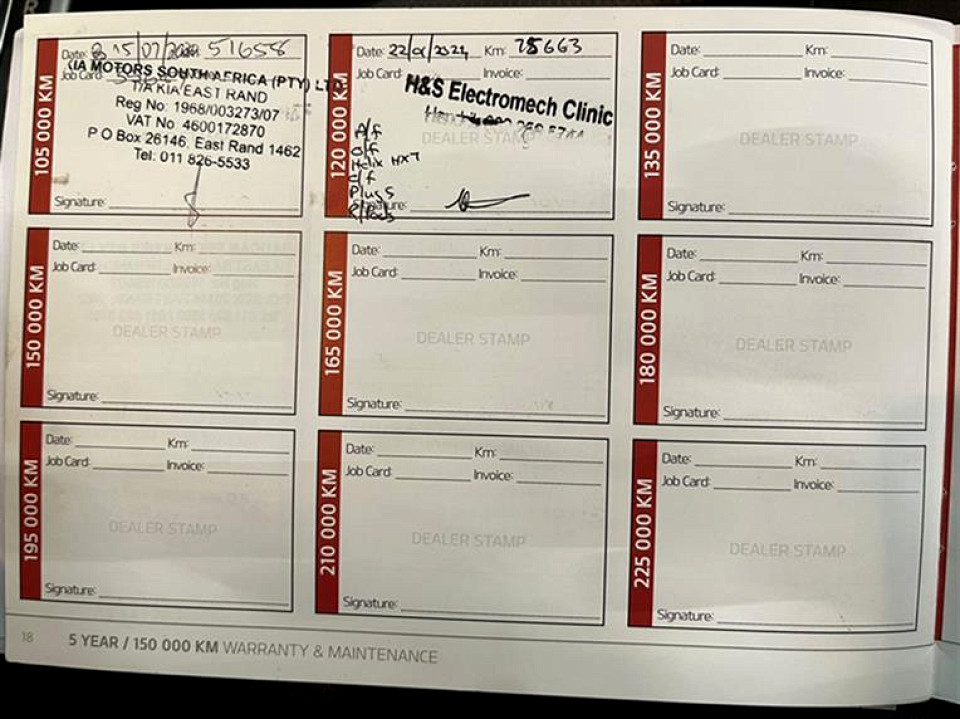 105 000 KM
Date: 15/07/ Km: 51658
Job Card:
KIA MOTORS SOUTH AFRICA (PTY) LTD
T/A KIA EAST RAND
Reg No: 1968/003273/07
VAT No: 4600172870
P O Box 26146, East Rand 1462
Tel: 011 826-5533
Signature:
120 000 KM
Date: 22/01/2024 Km: 78663
Job Card: Invoice:
H&S Electromech Clinic
DEALER STAMP
A/f
O/f
Helix HX7
Plugs
Signature:
135 000 KM
Date: Km:
Job Card: Invoice:
DEALER STAMP
Signature:
150 000 KM
Date: Km:
Job Card: Invoice:
DEALER STAMP
Signature:
165 000 KM
Date: Km:
Job Card: Invoice:
DEALER STAMP
Signature:
180 000 KM
Date: Km:
Job Card: Invoice:
DEALER STAMP
Signature:
195 000 KM
Date: Km:
Job Card: Invoice:
DEALER STAMP
Signature:
210 000 KM
Date: Km:
Job Card: Invoice:
DEALER STAMP
Signature:
225 000 KM
Date: Km:
Job Card: Invoice:
DEALER STAMP
Signature:
18 5 YEAR / 150 000 KM WARRANTY & MAINTENANCE